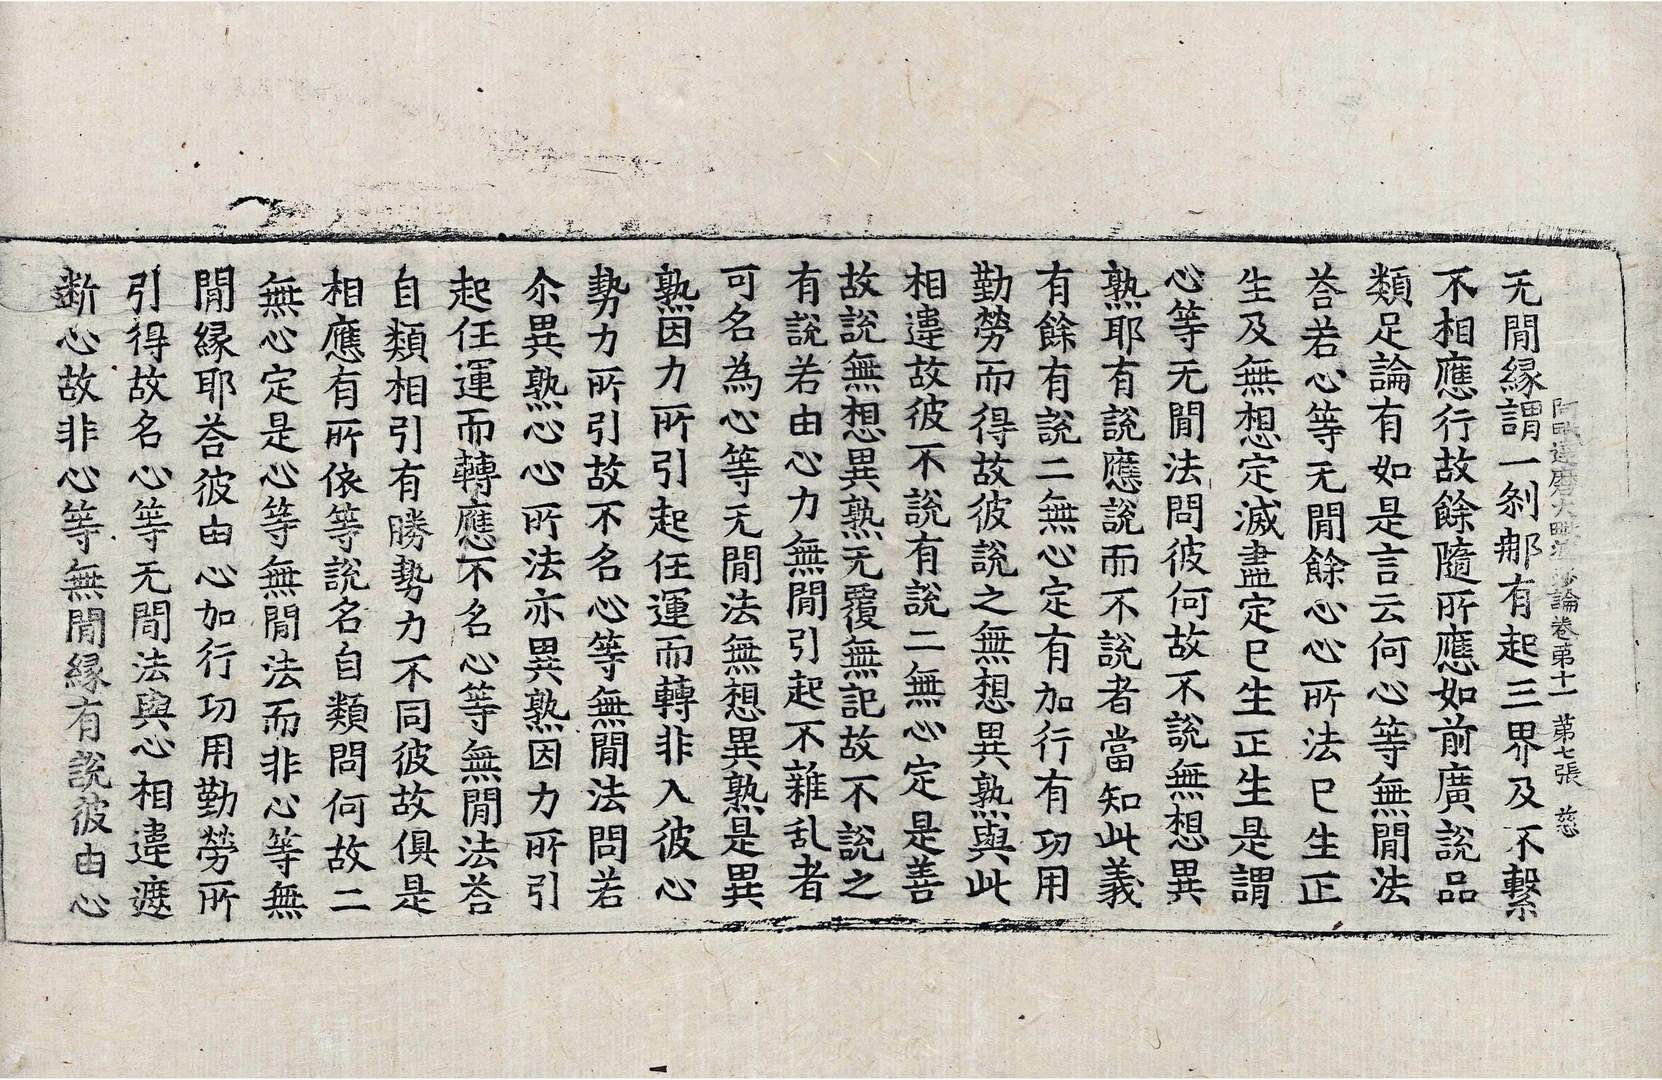 阿毗達磨大毗婆沙論卷第十一 第七張 慈
无閒縁謂一剎那有起三界及不繫
不相應行故餘隨所應如前廣說品
類足論有如是言云何心等無閒法
荅若心等无閒餘心心所法已生正
生及無想定滅盡定已生正生是謂
心等无閒法問彼何故不說無想異
熟耶有說應說而不說者當知此義
有餘有說二無心定有加行有功用
勤勞而得故彼說之無想異熟與此
相違故彼不說有說二無心定是善
故說無想異熟无覆無記故不說之
有說若由心力無閒引起不雜乱者
可名為心等无閒法無想異熟是異
熟因力所引起任運而轉非入彼心
勢力所引故不名心等無閒法問若
尒異熟心心所法亦異熟因力所引
起任運而轉應不名心等無閒法荅
自類相引有勝勢力不同彼故俱是
相應有所依等說名自類問何故二
無心定是心等無閒法而非心等無
閒縁耶荅彼由心加行功用勤勞所
引得故名心等无閒法與心相違遮
断心故非心等無閒縁有說彼由心